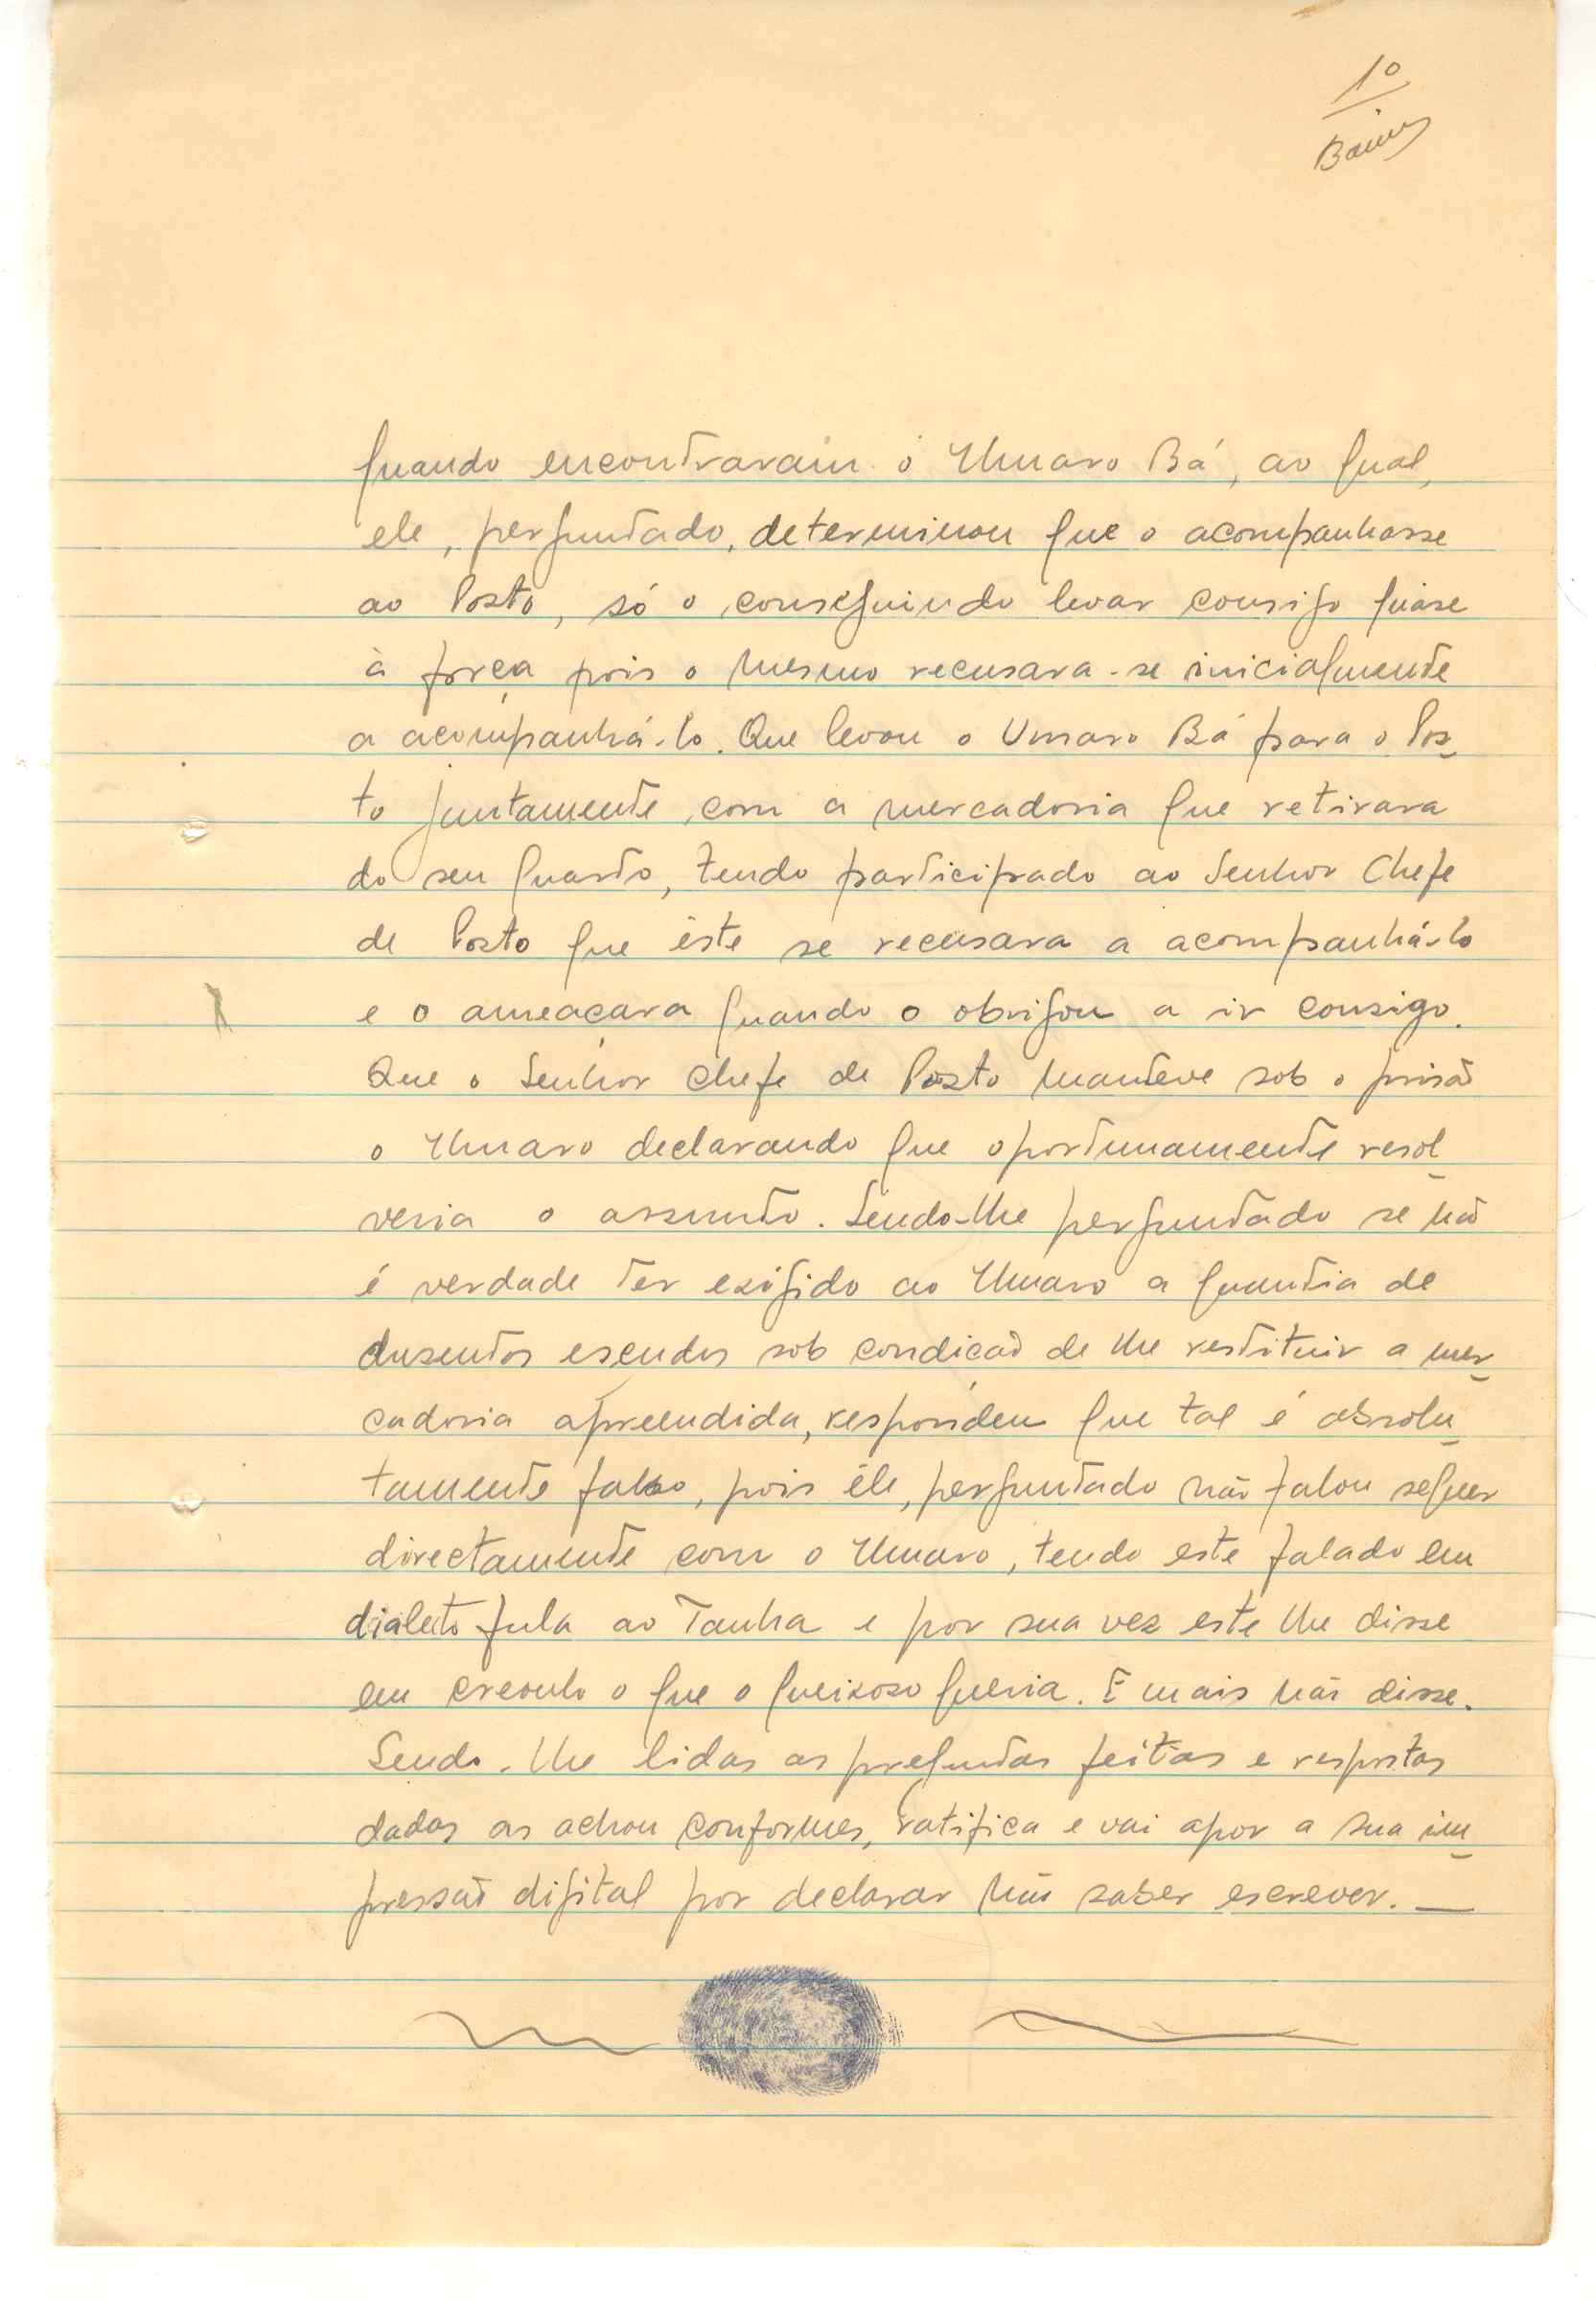 10
quando encontraram o Umaro Bá, ao qual,
ele, perguntado, determinou que o acompanhasse
ao Posto, só o conseguindo levar consigo quase
à força pois o mesmo recusara-se inicialmente
a acompanhá-lo. Que levou o Umaro Bá para o Pos-
to juntamente com a mercadoria que retirara
do seu quarto, tendo participado ao Senhor Chefe
de Posto que êste se recusara a acompanhá-lo
e o ameaçara quando o obrigou a ir consigo.
Que o Senhor Chefe de Posto manteve sob o prisão
o Umaro declarando que oportunamente resol-
veria o assunto. Sendo-lhe perguntado se não
é verdade ter exigido ao Umaro a quantia de
duzentos escudos sob condição de lhe restituir a mer-
cadoria apreendida, respondeu que tal é absolu-
tamente falso, pois êle, perguntado não falou sequer
directamente com o Umaro, tendo este falado em
dialecto fula ao Tanha e por sua vez este lhe disse
em creoulo o que o queixoso queria. E mais não disse.
Sendo-lhe lidas as preguntas feitas e respostas
dadas as achou conformes, ratifica e vai apor a sua im-
pressão digital por declarar não saber escrever. —